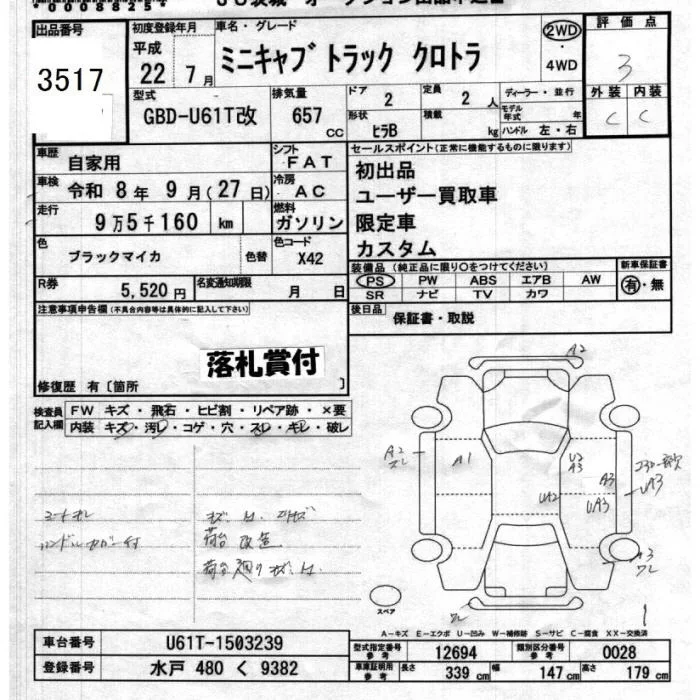 出品番号
3517
初度登録年月
平成
22 年 7 月
車名・グレード
ミニキャブ トラック クロトラ
2WD
4WD
評価点
3
外装 内装
C C
型式
GBD-U61T改
排気量
657 cc
ドア
2
定員
2 人
形状
ヒラB
積載
kg
ディーラー・並行
モデル年式 年
ハンドル 左・右
車歴
自家用
シフト
FAT
車検
令和 8年 9月(27日)
冷房
AC
走行
9万5千160 km
燃料
ガソリン
色
ブラックマイカ
色替
色コード
X42
R券
5,520 円
名変通知期限
月 日
セールスポイント(正常に機能するものに限ります)
初出品
ユーザー買取車
限定車
カスタム
装備品(純正品に限り○をつけてください)
PS PW ABS エアB AW
SR ナビ TV カワ
新車保証書
有・無
後日品
保証書・取説
注意事項申告欄(不具合内容等は具体的に記入して下さい)
落札賞付
修復歴 有〔箇所 〕
検査員記入欄
FW キズ・飛石・ヒビ割・リペア跡・×要
内装 キズ・汚レ・コゲ・穴・スレ・キレ・破レ
荷台 改造
A2
A2
A1
U2
A3
UA2
A3
UA3
UA3
A3
スペア
A-キズ E-エクボ U-凹み W-補修跡 S-サビ C-腐食 XX-交換済
車台番号
U61T-1503239
登録番号
水戸 480 く 9382
型式指定番号 参考
12694
類別区分番号 参考
0028
車庫証明用 参考
長さ 339 cm 幅 147 cm 高さ 179 cm